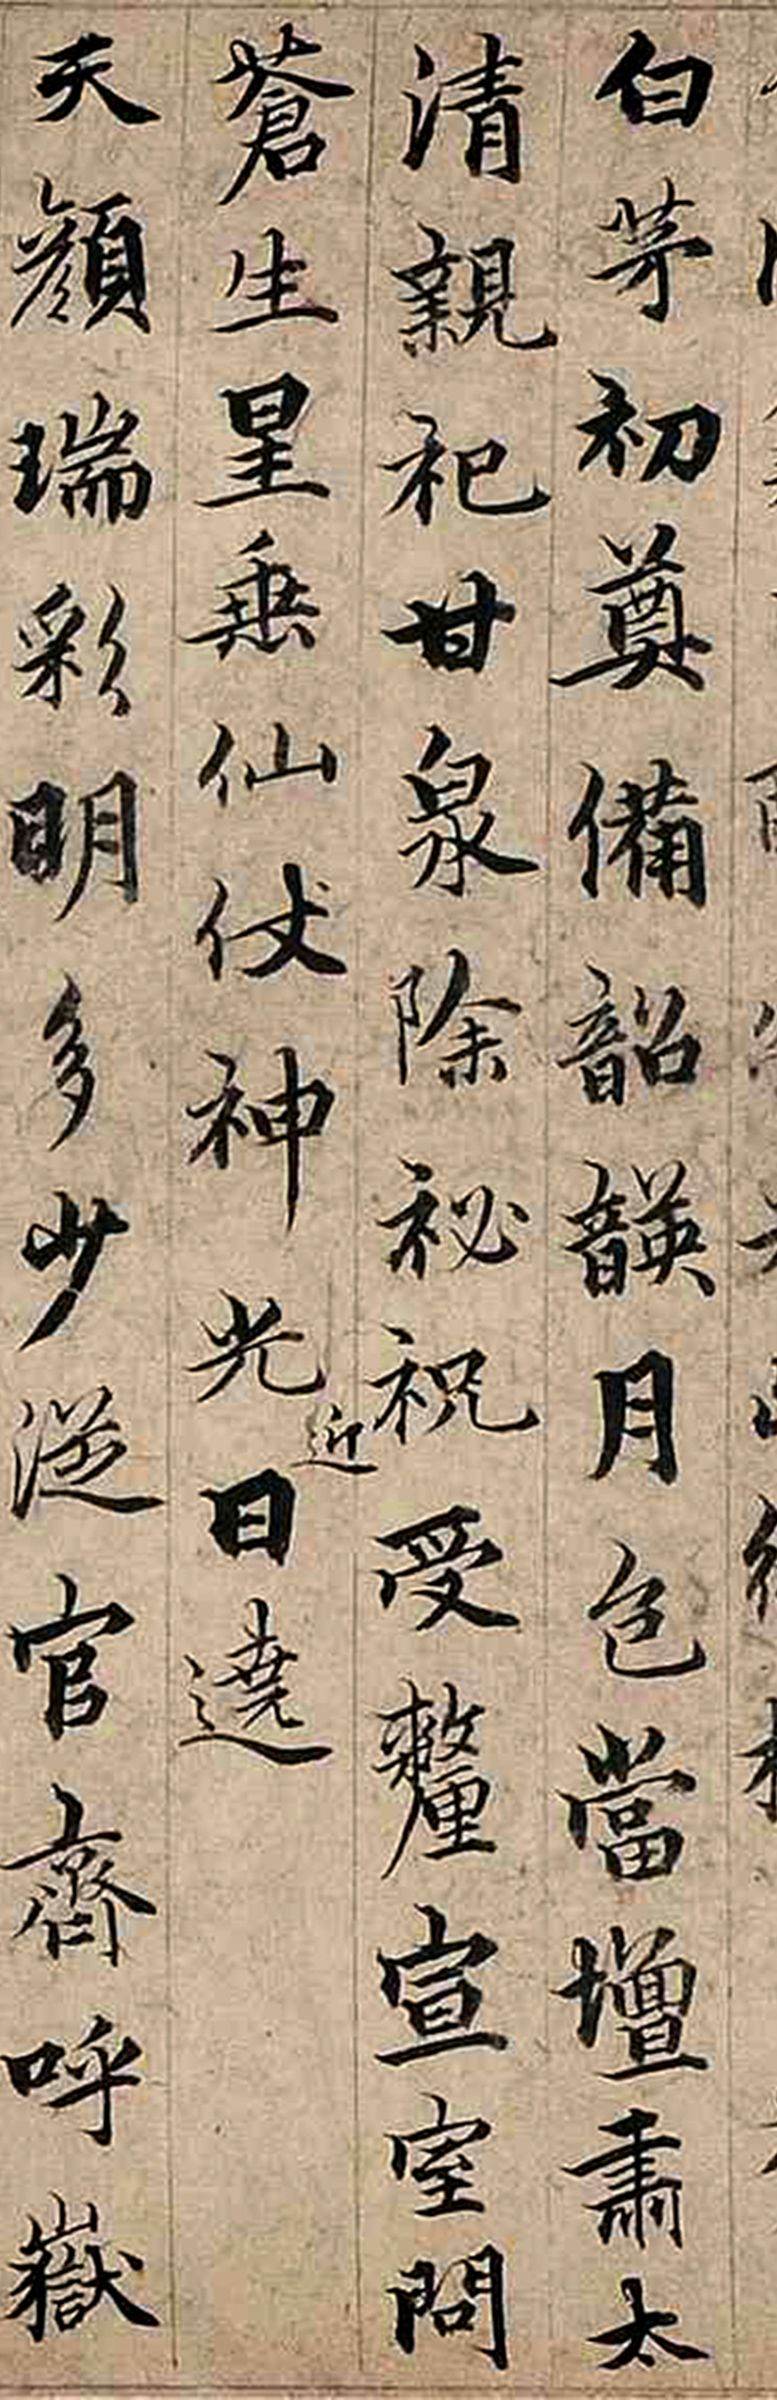 白茅初奠備韶韺月色當壇肅太
清親祀甘泉除祕祝受釐宣室問
蒼生星乗仙仗神光近日遶
天顔瑞彩明多少從官齊呼嶽